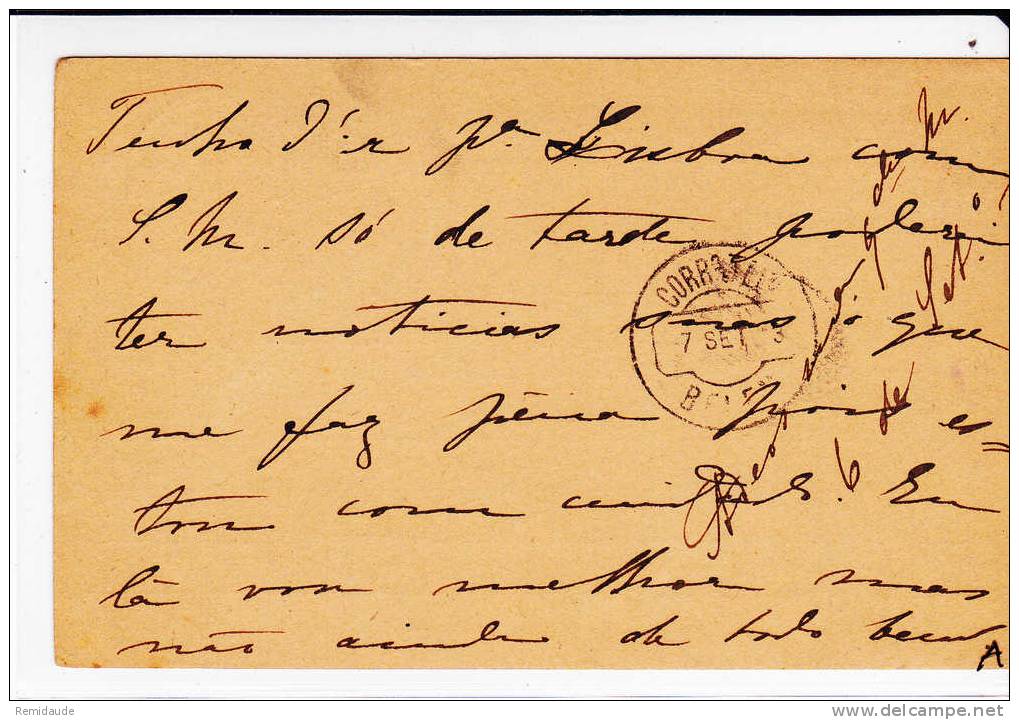 Tenho d'ir pª Lisboa com
S. M. só de tarde poderei
ter noticias suas o que
me faz pêna pois es=
tou com cuid.º. Eu
lá vou melhor mas
não ainda de todo bem
6 de Set.º
CORRO TELEG
7 SET 3
BELEM
A
Remidaude
DELCAMPE.NET